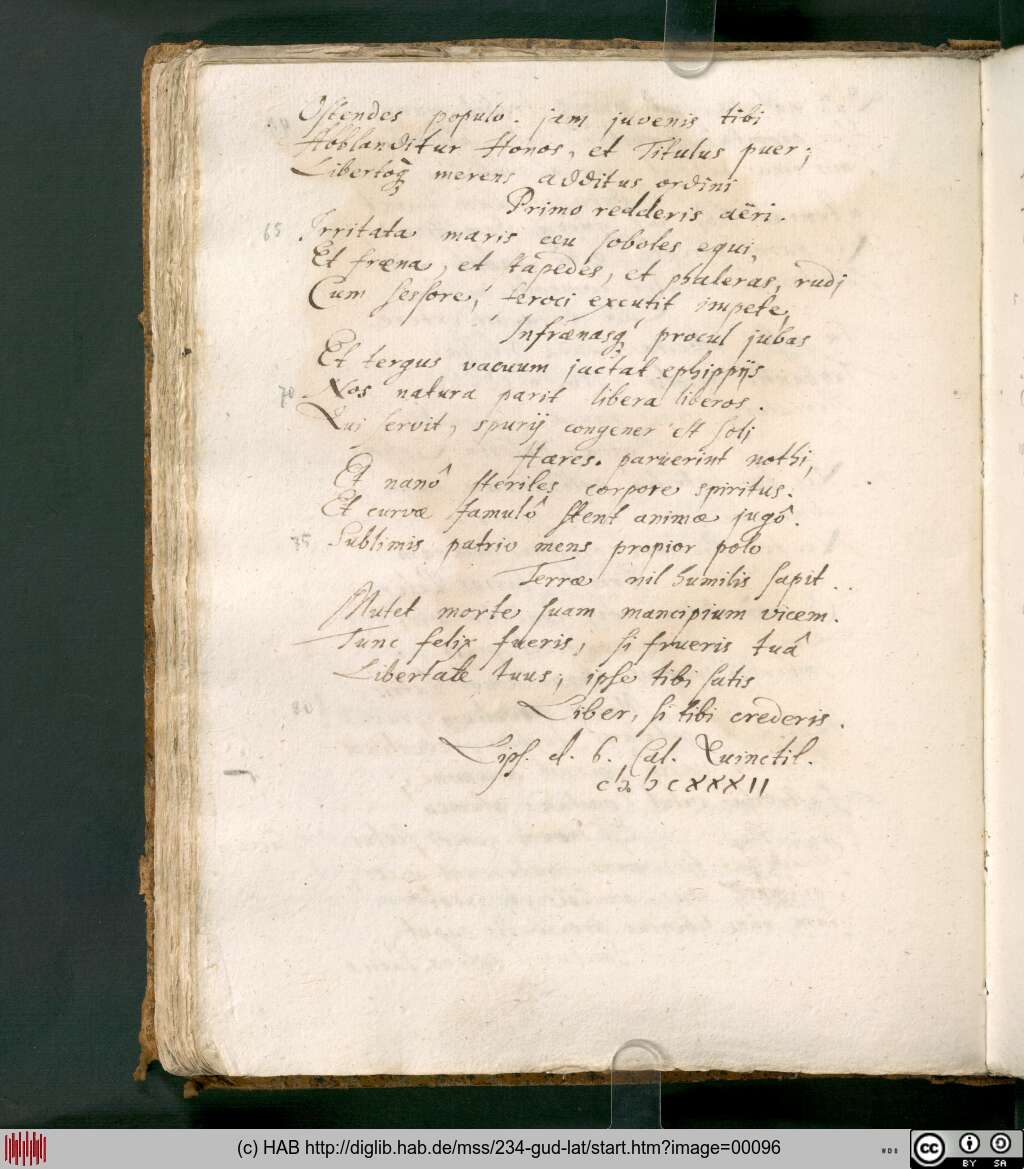 Ostendes populo. jam juvenis tibi
Abblanditur Honos, et Titulus puer;
Libertoq̃ merens additus ordini
Primo redderis aëri.
65 Irritata maris ceu soboles equi,
Et fræna, et tapedes, et phaleras, rudi
Cum sessore, feroci excutit impete,
Infrænasq̃ procul jubas
Et tergus vacuum jactat ephippijs
70 Nos natura parit libera liberos.
Qui servit, spurij congener est soli
Hæres. paruerint nothi,
Et nanô steriles corpore spiritus.
Et curvæ famulô stent animæ jugô.
75 Sublimis patrio mens propior polo
Terræ nil humilis sapit.
Mutet morte suam mancipium vicem.
Tunc felix fueris, si frueris tuâ
Libertate tuus; ipse tibi satis
Liber, si tibi crederis.
Lips. d. 6. Cal. Quinctil.
cIɔ Iɔ cXXXII
(c) HAB http://diglib.hab.de/mss/234-gud-lat/start.htm?image=00096
WDB
cc
BY SA